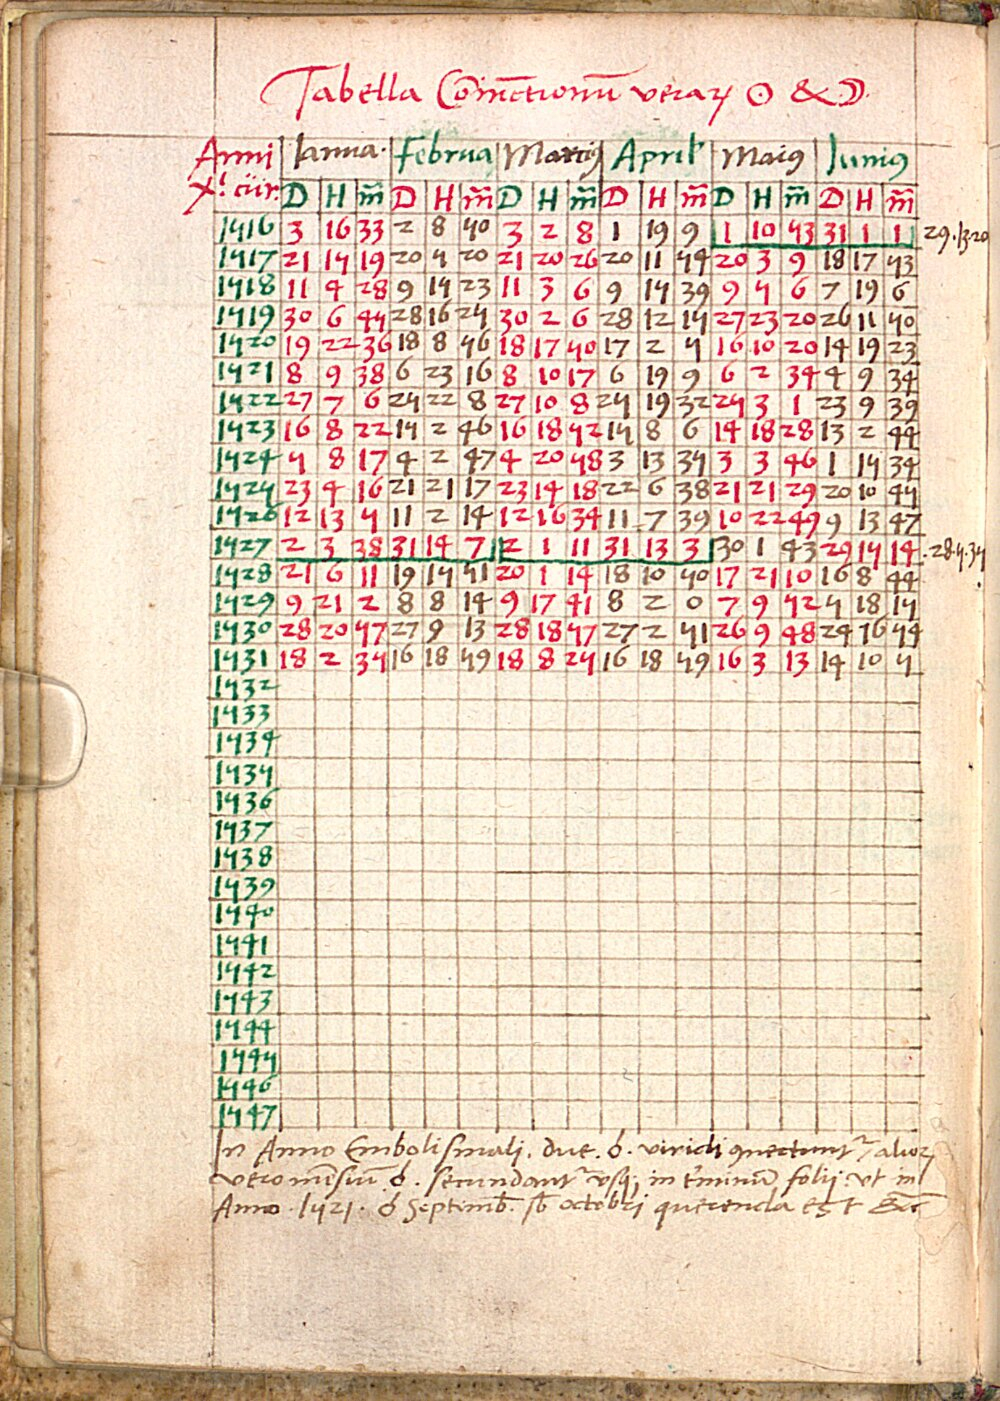 Tabella Coniūctionū verarꝝ ☉ & ☽
Anni Ianua. Februa Marciꝯ April' Maiꝯ Iuniꝯ
X.i cur. D H m̄ D H m̄ D H m̄ D H m̄ D H m̄ D H m̄
1516 3 16 33 2 8 50 3 2 8 1 19 9 1 10 53 31 1 1 29.13.20
1517 21 15 19 20 5 20 21 20 26 20 11 54 20 3 9 18 17 53
1518 11 4 28 9 15 23 11 3 6 9 15 39 9 5 6 7 19 6
1519 30 6 45 28 16 25 30 2 6 28 12 15 27 23 20 26 11 50
1520 19 22 36 18 8 56 18 17 50 17 2 5 16 10 20 14 19 23
1521 8 9 38 6 23 16 8 10 17 6 19 9 6 2 34 4 9 34
1522 27 7 6 25 22 8 27 10 8 25 19 32 25 3 1 23 9 39
1523 16 8 22 15 2 46 16 18 52 15 8 6 14 18 28 13 2 44
1524 5 8 17 4 2 47 4 20 58 3 13 35 3 3 46 1 15 34
1525 23 4 16 21 21 17 23 14 18 22 6 38 21 21 29 20 10 45
1526 12 13 5 11 2 14 12 16 34 11 7 39 10 22 49 9 13 47
1527 2 3 38 31 14 7 2 1 11 31 13 3 30 1 43 29 15 14 .28.5.35
1528 21 6 11 19 15 51 20 1 14 18 10 50 17 21 10 16 8 44
1529 9 21 2 8 8 14 9 17 41 8 2 0 7 9 52 5 18 15
1530 28 20 57 27 9 13 28 18 57 27 2 51 26 9 48 24 16 54
1531 18 2 35 16 18 59 18 8 25 16 18 59 16 3 13 14 10 5
1532
1533
1534
1535
1536
1537
1538
1539
1540
1541
1542
1543
1544
1545
1546
1547
In Anno Embolismali. due. ☌. viridi ꝯnectunt' alioꝝ
vero mēsiū ☌. secundant' vsqꝫ in t'minū folij. vt in
Anno .1521. ☌ Septimb. sb octobri querenda est